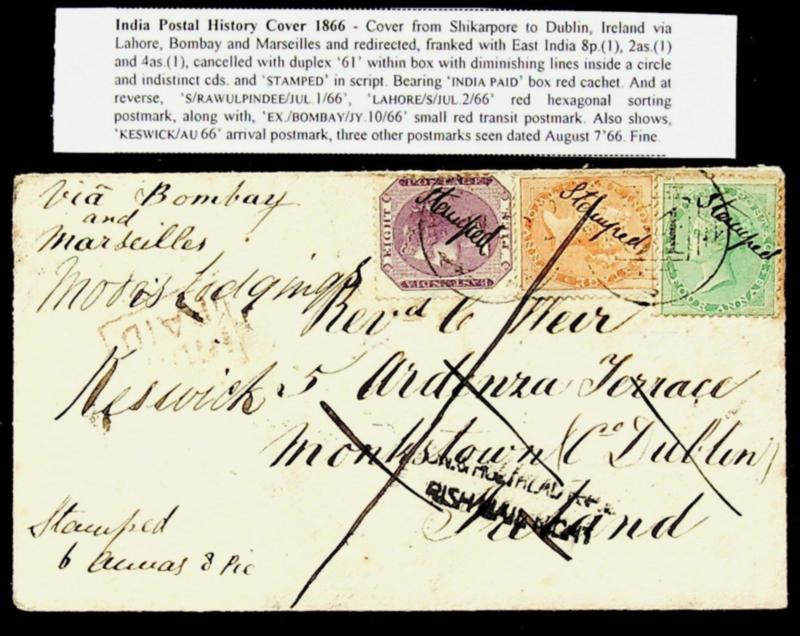 India Postal History Cover 1866 - Cover from Shikarpore to Dublin, Ireland via
Lahore, Bombay and Marseilles and redirected, franked with East India 8p.(1), 2as.(1)
and 4as.(1), cancelled with duplex '61' within box with diminishing lines inside a circle
and indistinct cds. and 'STAMPED' in script. Bearing 'INDIA PAID' box red cachet. And at
reverse, 'S/RAWULPINDEE/JUL.1/66', 'LAHORE/S/JUL.2/66' red hexagonal sorting
postmark, along with, 'EX./BOMBAY/JY.10/66' small red transit postmark. Also shows,
'KESWICK/AU 66' arrival postmark, three other postmarks seen dated August 7'66. Fine.
via Bombay
and
Marseilles
EIGHT PIES
EAST INDIA
Stamped
Stamped
Stamped
Lodgings
PAID
Revd C Weir
Keswick
5 Ardenza Terrace
Monkstown Co Dublin
Ireland
IRISH MAIL NIGHT
Stamped
6 annas 8 Pie